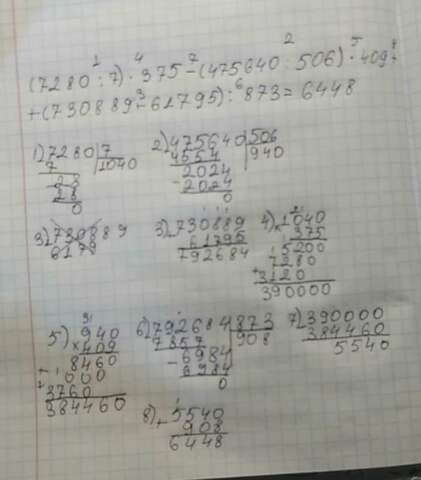 (7280:7)·375-(475640:506)·409+
+(730889+61795):873=6448
1) 7280 | 7
7 | 1040
28
28
0
2) 475640 | 506
4554 | 940
2024
- 2024
0
3) 730889
6179
3) 730889
61795
792684
4) 1040
× 375
5200
7280
+ 3120
390000
5) 940
× 409
8460
+ 000
3760
384460
6) 792684 | 873
7857 | 908
- 6984
6984
0
7) 390000
384460
5540
8) 5540
+ 908
6448